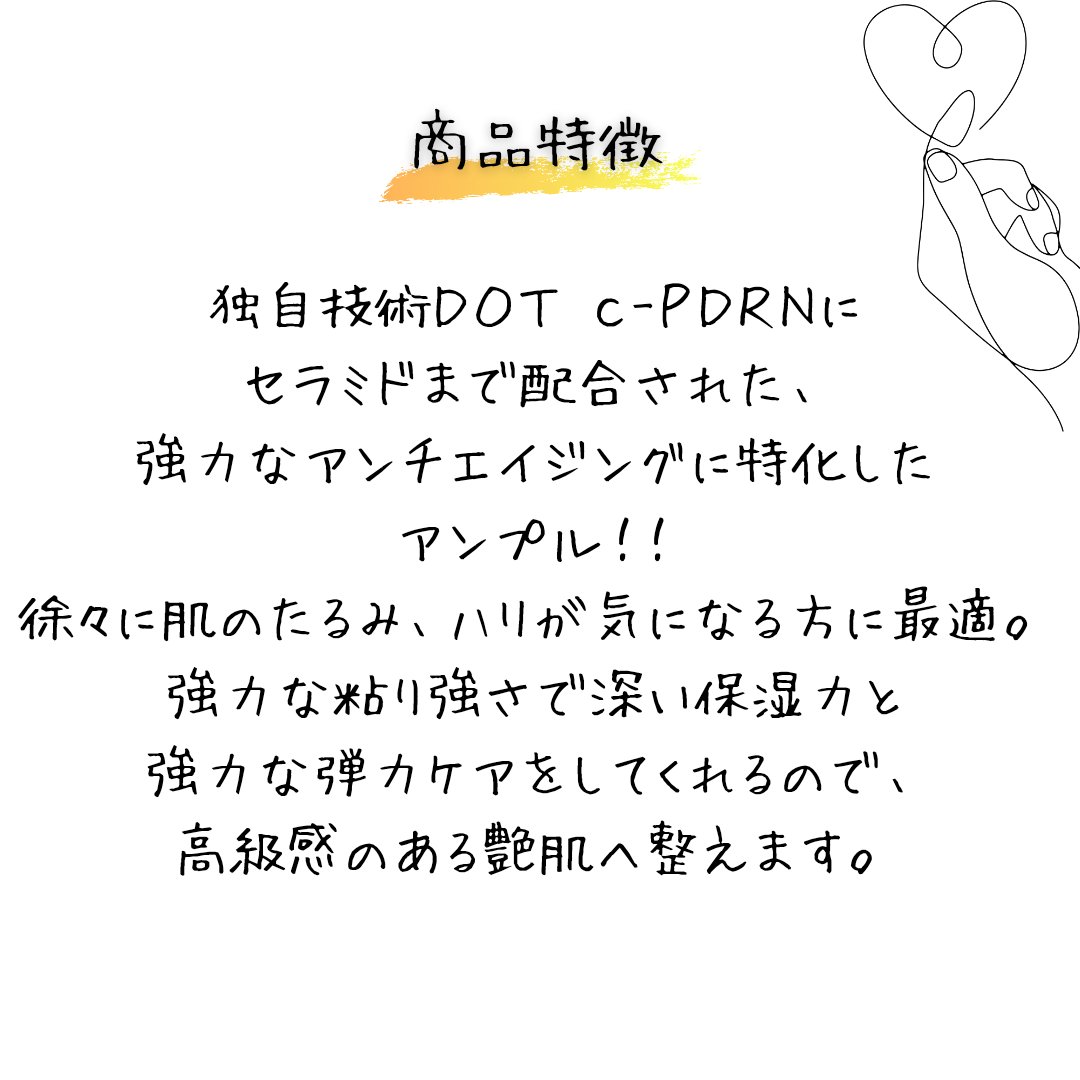 商品特徴
独自技術DOT c-PDRNに
セラミドまで配合された、
強力なアンチエイジングに特化した
アンプル!!
徐々に肌のたるみ、ハリが気になる方に最適。
強力な粘り強さで深い保湿力と
強力な弾力ケアをしてくれるので、
高級感のある艶肌へ整えます。